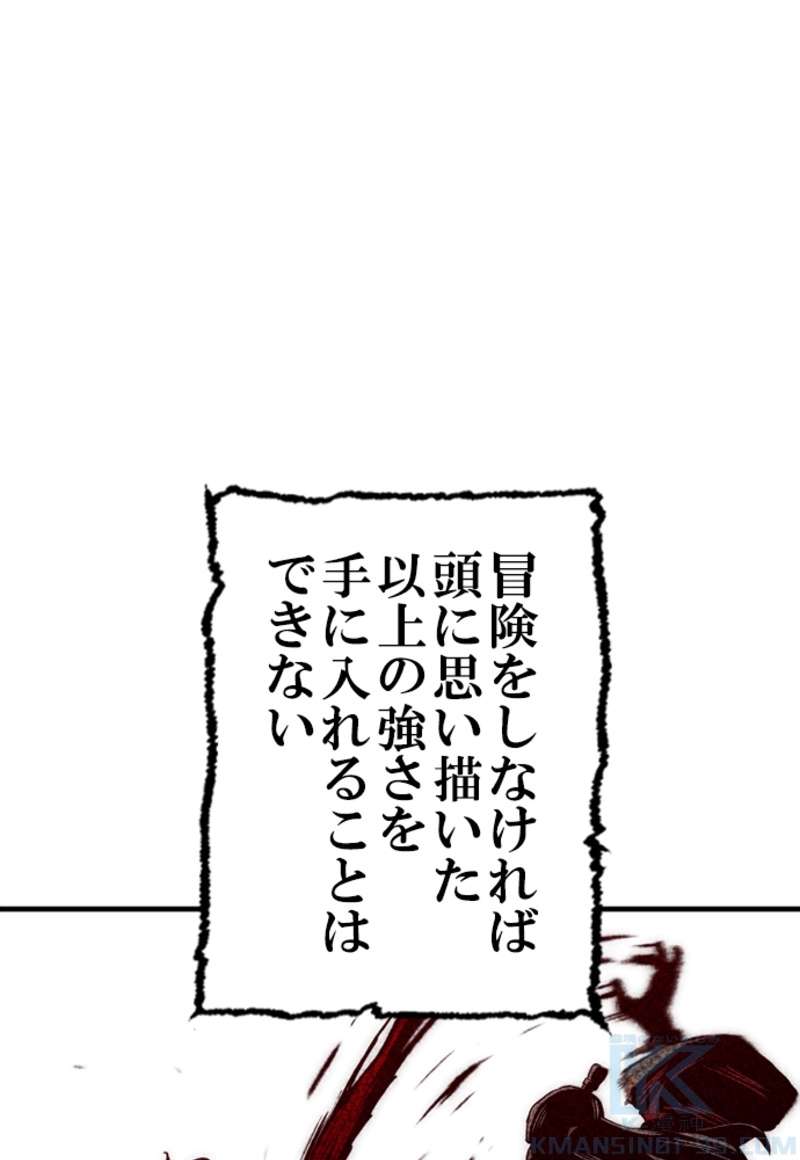 冒険をしなければ
頭に思い描いた
以上の強さを
手に入れることは
できない